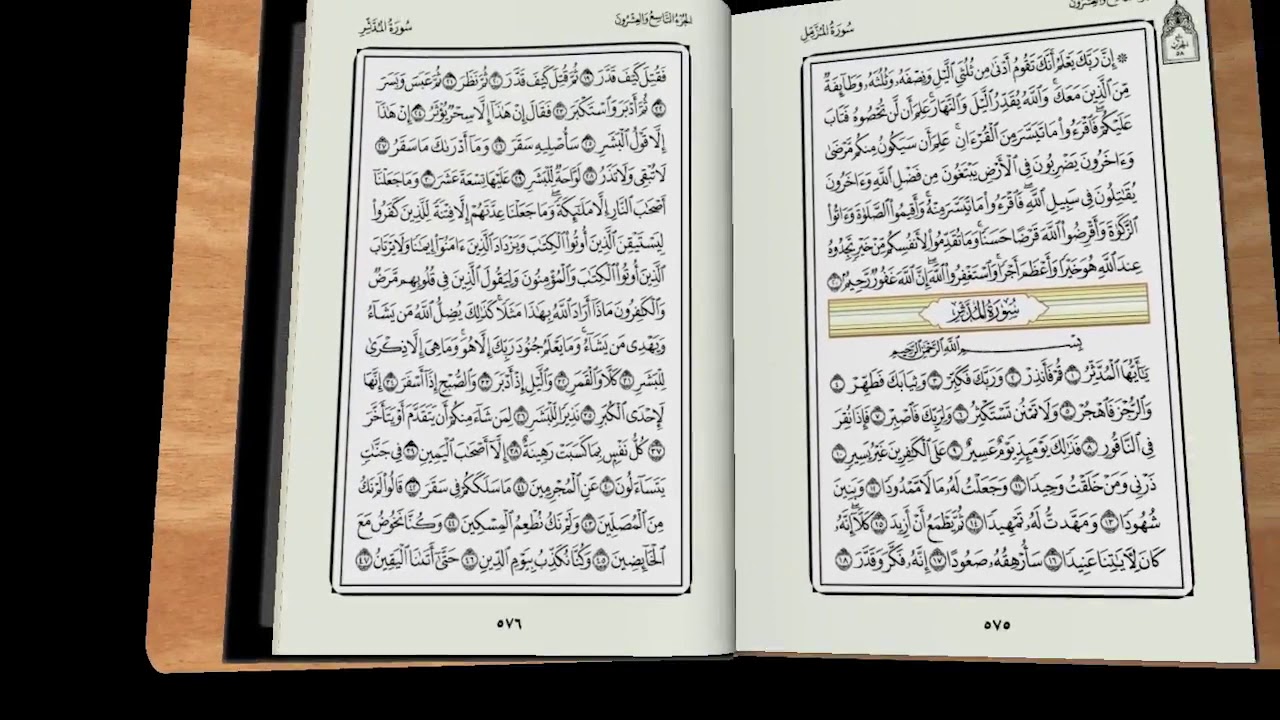 الجزء التاسع والعشرون
سورة المزمل
ربع
الحزب
٥٨
۞ إِنَّ رَبَّكَ يَعْلَمُ أَنَّكَ تَقُومُ أَدْنَىٰ مِن ثُلُثَيِ ٱلَّيْلِ وَنِصْفَهُۥ وَثُلُثَهُۥ وَطَآئِفَةٌ
مِّنَ ٱلَّذِينَ مَعَكَ ۚ وَٱللَّهُ يُقَدِّرُ ٱلَّيْلَ وَٱلنَّهَارَ ۚ عَلِمَ أَن لَّن تُحْصُوهُ فَتَابَ
عَلَيْكُمْ ۖ فَٱقْرَءُوا۟ مَا تَيَسَّرَ مِنَ ٱلْقُرْءَانِ ۚ عَلِمَ أَن سَيَكُونُ مِنكُم مَّرْضَىٰ
وَءَاخَرُونَ يَضْرِبُونَ فِى ٱلْأَرْضِ يَبْتَغُونَ مِن فَضْلِ ٱللَّهِ ۙ وَءَاخَرُونَ
يُقَـٰتِلُونَ فِى سَبِيلِ ٱللَّهِ ۖ فَٱقْرَءُوا۟ مَا تَيَسَّرَ مِنْهُ ۚ وَأَقِيمُوا۟ ٱلصَّلَوٰةَ وَءَاتُوا۟
ٱلزَّكَوٰةَ وَأَقْرِضُوا۟ ٱللَّهَ قَرْضًا حَسَنًا ۚ وَمَا تُقَدِّمُوا۟ لِأَنفُسِكُم مِّنْ خَيْرٍ تَجِدُوهُ
عِندَ ٱللَّهِ هُوَ خَيْرًا وَأَعْظَمَ أَجْرًا ۚ وَٱسْتَغْفِرُوا۟ ٱللَّهَ ۖ إِنَّ ٱللَّهَ غَفُورٌ رَّحِيمٌۢ ٢٠
سورة المدثر
بِسْمِ ٱللَّهِ ٱلرَّحْمَـٰنِ ٱلرَّحِيمِ
يَـٰٓأَيُّهَا ٱلْمُدَّثِّرُ ١ قُمْ فَأَنذِرْ ٢ وَرَبَّكَ فَكَبِّرْ ٣ وَثِيَابَكَ فَطَهِّرْ ٤
وَٱلرُّجْزَ فَٱهْجُرْ ٥ وَلَا تَمْنُن تَسْتَكْثِرُ ٦ وَلِرَبِّكَ فَٱصْبِرْ ٧ فَإِذَا نُقِرَ
فِى ٱلنَّاقُورِ ٨ فَذَٰلِكَ يَوْمَئِذٍ يَوْمٌ عَسِيرٌ ٩ عَلَى ٱلْكَـٰفِرِينَ غَيْرُ يَسِيرٍ ١٠
ذَرْنِى وَمَنْ خَلَقْتُ وَحِيدًا ١١ وَجَعَلْتُ لَهُۥ مَالًا مَّمْدُودًا ١٢ وَبَنِينَ
شُهُودًا ١٣ وَمَهَّدتُّ لَهُۥ تَمْهِيدًا ١٤ ثُمَّ يَطْمَعُ أَنْ أَزِيدَ ١٥ كَلَّآ ۖ إِنَّهُۥ
كَانَ لِـَٔايَـٰتِنَا عَنِيدًا ١٦ سَأُرْهِقُهُۥ صَعُودًا ١٧ إِنَّهُۥ فَكَّرَ وَقَدَّرَ ١٨
٥٧٥
الجزء التاسع والعشرون
سورة المدثر
فَقُتِلَ كَيْفَ قَدَّرَ ١٩ ثُمَّ قُتِلَ كَيْفَ قَدَّرَ ٢٠ ثُمَّ نَظَرَ ٢١ ثُمَّ عَبَسَ وَبَسَرَ
٢٢ ثُمَّ أَدْبَرَ وَٱسْتَكْبَرَ ٢٣ فَقَالَ إِنْ هَـٰذَآ إِلَّا سِحْرٌ يُؤْثَرُ ٢٤ إِنْ هَـٰذَآ
إِلَّا قَوْلُ ٱلْبَشَرِ ٢٥ سَأُصْلِيهِ سَقَرَ ٢٦ وَمَآ أَدْرَىٰكَ مَا سَقَرُ ٢٧
لَا تُبْقِى وَلَا تَذَرُ ٢٨ لَوَّاحَةٌ لِّلْبَشَرِ ٢٩ عَلَيْهَا تِسْعَةَ عَشَرَ ٣٠ وَمَا جَعَلْنَآ
أَصْحَـٰبَ ٱلنَّارِ إِلَّا مَلَـٰٓئِكَةً ۙ وَمَا جَعَلْنَا عِدَّتَهُمْ إِلَّا فِتْنَةً لِّلَّذِينَ كَفَرُوا۟
لِيَسْتَيْقِنَ ٱلَّذِينَ أُوتُوا۟ ٱلْكِتَـٰبَ وَيَزْدَادَ ٱلَّذِينَ ءَامَنُوٓا۟ إِيمَـٰنًا ۙ وَلَا يَرْتَابَ
ٱلَّذِينَ أُوتُوا۟ ٱلْكِتَـٰبَ وَٱلْمُؤْمِنُونَ ۙ وَلِيَقُولَ ٱلَّذِينَ فِى قُلُوبِهِم مَّرَضٌ
وَٱلْكَـٰفِرُونَ مَاذَآ أَرَادَ ٱللَّهُ بِهَـٰذَا مَثَلًا ۚ كَذَٰلِكَ يُضِلُّ ٱللَّهُ مَن يَشَآءُ
وَيَهْدِى مَن يَشَآءُ ۚ وَمَا يَعْلَمُ جُنُودَ رَبِّكَ إِلَّا هُوَ ۚ وَمَا هِىَ إِلَّا ذِكْرَىٰ
لِلْبَشَرِ ٣١ كَلَّا وَٱلْقَمَرِ ٣٢ وَٱلَّيْلِ إِذْ أَدْبَرَ ٣٣ وَٱلصُّبْحِ إِذَآ أَسْفَرَ ٣٤ إِنَّهَا
لَإِحْدَى ٱلْكُبَرِ ٣٥ نَذِيرًا لِّلْبَشَرِ ٣٦ لِمَن شَآءَ مِنكُمْ أَن يَتَقَدَّمَ أَوْ يَتَأَخَّرَ
٣٧ كُلُّ نَفْسٍۭ بِمَا كَسَبَتْ رَهِينَةٌ ٣٨ إِلَّآ أَصْحَـٰبَ ٱلْيَمِينِ ٣٩ فِى جَنَّـٰتٍ
يَتَسَآءَلُونَ ٤٠ عَنِ ٱلْمُجْرِمِينَ ٤١ مَا سَلَكَكُمْ فِى سَقَرَ ٤٢ قَالُوا۟ لَمْ نَكُ
مِنَ ٱلْمُصَلِّينَ ٤٣ وَلَمْ نَكُ نُطْعِمُ ٱلْمِسْكِينَ ٤٤ وَكُنَّا نَخُوضُ مَعَ
ٱلْخَآئِضِينَ ٤٥ وَكُنَّا نُكَذِّبُ بِيَوْمِ ٱلدِّينِ ٤٦ حَتَّىٰٓ أَتَىٰنَا ٱلْيَقِينُ ٤٧
٥٧٦